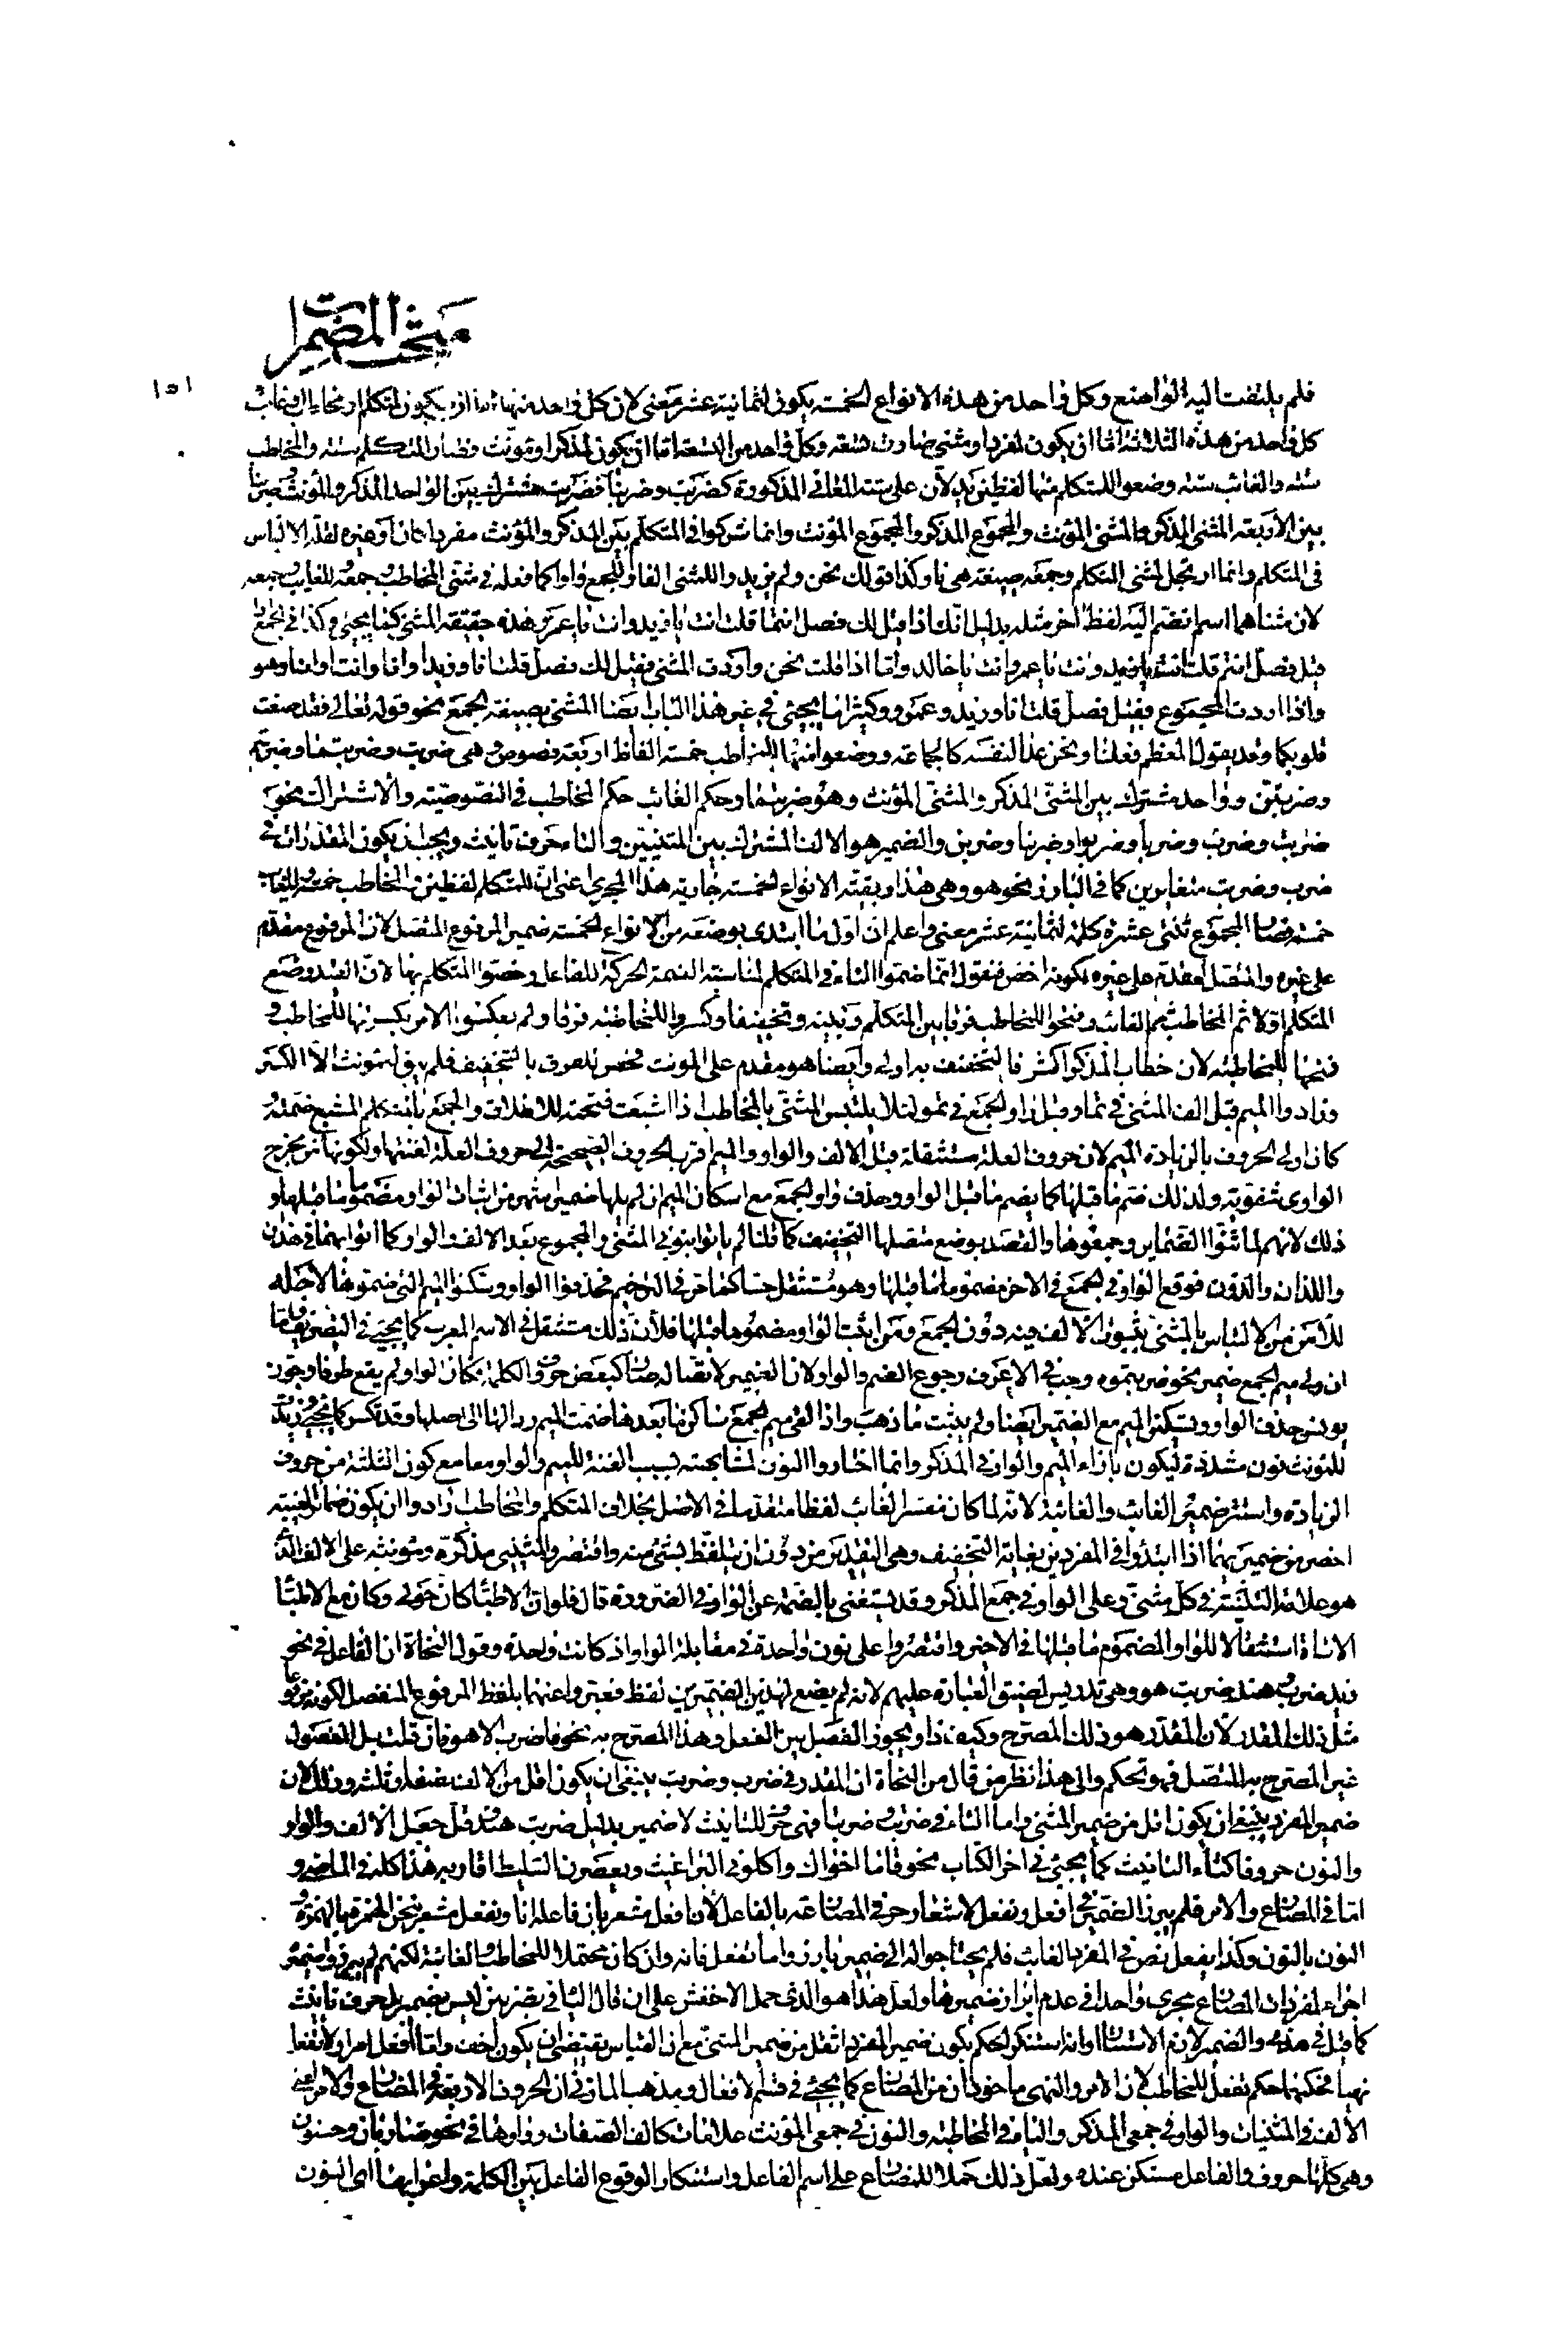 مبحث المضمرات
١٥١
فلم يلتفت اليه الواضع وكل واحد من هذه الانواع الخمسة يكون لثمانية عشر معنى لان كل واحد منها اما ان يكون لمتكلم او مخاطب او غائب
كل واحد من هذه الثلاثة اما ان يكون لمفرد او مثنى صارت تسعة وكل واحد من التسعة اما ان يكون لمذكر او مؤنث فصار للمتكلم ستة وللمخاطب
ستة وللغائب ستة وضعوا للمتكلم منها لفظين يدلان على الستة المعانى المذكورة كضربت وضربنا فضربت مشترك بين الواحد المذكر والمؤنث وضربنا
بين الأربعة المثنى المذكر والمثنى المؤنث والمجموع المذكر والمجموع المؤنث وانما شركوا فى المتكلم بين المذكر والمؤنث مفردا كان أو غيره لقلة الالتباس
فى المتكلم وانما ارتجل لمثنى المتكلم وجمعه صيغة هى نا وكذا قولك نحن ولم يزيدوا للمثنى الفا وللجمع واوا كما فعله فى مثنى المخاطب وجمعه والغايب وجمعه
لان مثناهما اسم انضم اليه لفظ اخر مثله بدليل انك اذا قيل لك فصل انتما قلت انت يا زيد وانت يا عمرو وهذه حقيقة المثنى كما يجيئ وكذا فى الجمع اذا
قيل فصل انتم قلت انت يا زيد وانت يا عمرو وانت يا خالد وأما اذا قلت نحن واردت المثنى فقيل لك فصل قلت انا وزيد أو انا وانت أو انا وهو
واذا اردت المجموع فقيل فصل قلت انا وزيد وعمرو وكثيرا ما يجيئ فى غير هذا الباب ايضا المثنى بصيغة الجمع نحو قوله تعالى فقد صغت
قلوبكما وقد يقول المعظم فعلنا ونحن عادا لنفسه كالجماعة ووضعوا منها للمخاطب خمسة الفاظ اربعة نصوص هى ضربت وضربت وضربتم
وضربتن وواحد مشترك بين المثنى المذكر والمثنى المؤنث وهو ضربتما وحكم الغائب حكم المخاطب فى النصوصية والاشتراك نحو
ضرب وضربت وضربا وضربوا وضربتا وضربن والضمير هو الالف المشترك بين المثنيين والتاء حرف تأنيث ويجب ان يكون المقدران فى
ضرب وضربت متغايرين كما فى البارز نحو هو وهى هذا وبقية الانواع الخمسة جارية هذا المجرى اعنى ان للمتكلم لفظين وللمخاطب خمسة وللغائب
خمسة فصار المجموع ثنتى عشرة كلمة لثمانية عشر معنى واعلم ان اول ما ابتدئ بوضعه من الانواع الخمسة ضمير المرفوع المتصل لان المرفوع مقدم
على غيره والمتصل مقدم على غيره لكونه اخصر فنقول انما ضموا التاء فى المتكلم لمناسبة الضمة لحركة الفاعل وخصوا المتكلم بها لان القياس وضع
المتكلم اولا ثم المخاطب ثم الغائب وفتحوا للمخاطب فرقا بين المتكلم وبينه وتخفيفا وكسروا للمخاطبة فرقا ولم يعكسوا الامر بكسرها للمخاطب و
فتحها للمخاطبة لان خطاب المذكر اكثر فالتخفيف به اولى وأيضا هو مقدم على المونث فخص للفرق بالتخفيف فلم يبق للمونث الا الكسر
وزادوا الميم قبل الف المثنى فى تما وقبل واو الجمع فى تمو لئلا يلتبس المثنى بالمخاطب اذا اشبعت فتحته للاطلاق والجمع بالمتكلم المشبع ضمته و
كان اولى الحروف بالزيادة الميم لان حروف العلة مستثقلة قبل الالف والواو والميم اقرب الحروف الصحيحة الى حروف العلة لغنتها ولكونها من مخرج
الواو اى شفوية ولذلك ضم ما قبلها كما يضم ما قبل الواو وحذف واو الجمع مع اسكان الميم ان لم يلها ضمير اشهر من اثبات الواو مضموما ما قبلها و
ذلك لانهم لما ثنوا الضماير وجمعوها والقصد بوضع متصلها التخفيف كما قلنا لم يأتوا بنونى المثنى والمجموع بعد الالف والواو كما اتوا بهما فى هذان
واللذان والذون فوقع الواو فى الجمع فى الاخر مضموما ما قبلها وهو مستثقل حسا كما مر فى الترخيم فحذفوا الواو وسكنوا الميم التى ضموها لاجله
للامن من الالتباس بالمثنى بثبوت الالف فيه دون الجمع ومن اثبت الواو مضموما ما قبلها فلان ذلك مستثقل فى الاسم المعرب كما يجيئ فى التصريف واما
ان ولى ميم الجمع ضمير نحو ضربتموه وجب فى الاعرف رجوع الضم والواو لان الضمير لاتصاله صار كبعض حروف الكلمة فكان الواو لم يقع طرفا وجوز
يونس حذف الواو وتسكين الميم مع الضمير ايضا ولم يثبت ما ذهب واذا لقى ميم الجمع ساكن ما بعدها ضمت الميم ردا لها الى اصلها وقد تكسر كما يجيئ وزيدت
للمونث نون مشددة ليكون بازاء الميم والواو فى المذكر وانما اختاروا النون لمشابهته بسبب الغنة للميم والواو معا مع كون الثلثة من حروف
الزيادة واستتر ضمير الغائب والغائبة لانه لما كان مفسر الغائب لفظا متقدما فى الاصل بخلاف المتكلم والمخاطب ارادوا ان يكون ضمائر الغيبة
اخصر من ضميريهما اذا ابتدؤا فى المفردين بغاية التخفيف وهى التقدير من دون ان يتلفظ بشئ منه واقتصروا لمثنيى مذكره ومونثه على الالف الذى
هو علامة التثنية فى كل مثنى وعلى الواو فى جمع المذكر وقد يستغنى بالضمة عن الواو فى الضرورة قال فلو ان الاطبا كان حولى وكان مع الاطبا
الاساة استثقالا للواو المضموم ما قبلها فى الاخير واقتصروا على نون واحدة فى مقابلة الواو اذ كانت واحدة وقول النحاة ان الفاعل فى نحو
زيد ضرب وهند ضربت هو وهى تدريس لضيق العبارة عليهم لانه لم يوضع لهذين الضميرين لفظ فعبر واعنهما بلفظ المرفوع المنفصل لكونه مرفوعا
مثل ذلك المقدر لان المقدر هو ذلك المصرح وكيف ذا ويجوز الفصل بين الفعل وهذا المصرح به نحو ما ضرب الا هو فان قلت بل المفصول
غير المصرح به المتصل فهو تحكم والى هذا نظر من قال من النحاة ان المقدر فى ضرب وضربت ينبغى ان يكون اقل من الالف نصفها وثلثه وذلك لان
ضمير المفرد ينبغى ان يكون اقل من ضمير المثنى واما التاء فى ضربت وضربتا فهى حرف للتانيث لا ضمير بدليل ضربت هند وقل جعل الالف والواو
والنون حروفا كتاء التانيث كما يجيئ فى اخر الكتاب نحو قاما اخواك واكلونى البراغيث ويعصرن السليط اقاربه هذا كله فى الماضى و
اما فى المضارع والامر فلم يبرز الضمير فى افعل ونفعل لاشعار حرف المضارعة بالفاعل لان افعل مشعر بان فاعله انا ونفعل مشعر بنحن الهمزة بالهمزة و
النون بالنون وكذا يفعل نص فى المفرد الغائب فلم يحتاجوا له الى ضمير بارز واما تفعل فانه وان كان محتملا للمخاطب والغائبة لكنهم لم يبرزوا ضميره
اجراء لمفردات المضارع مجرى واحدا فى عدم ابراز ضميرها ولعل هذا هو الذى حمل الاخفش على ان قال الياء فى تضربين ليس بضمير بل حرف تأنيث
كما قيل فى هذى والضمير لازم الاستتار او انه استنكر الحكم بكون ضمير المفرد اثقل من ضمير المثنى مع ان القياس يقتضى ان يكون أخف واما افعل امرا ولا تفعل
نهيا فحكمهما حكم تفعل للمخاطب لان الامر والنهى ماخوذان من المضارع كما يجيئ فى قسم الافعال ومذهب المازنى ان الحروف الاربعة فى المضارع والامر اعنى
الألف فى المثنيات والواو فى جمعى المذكر والياء فى المخاطبة والنون فى جمعى المؤنث علامات كالف الصفات وواوها فى نحو ضاربان وحسنون
وهى كلها حروف والفاعل مستكن عنده ولعل ذلك حملا للمضارع على اسم الفاعل واستنكارا لوقوع الفاعل بين الكلمة واعرابها اى النون